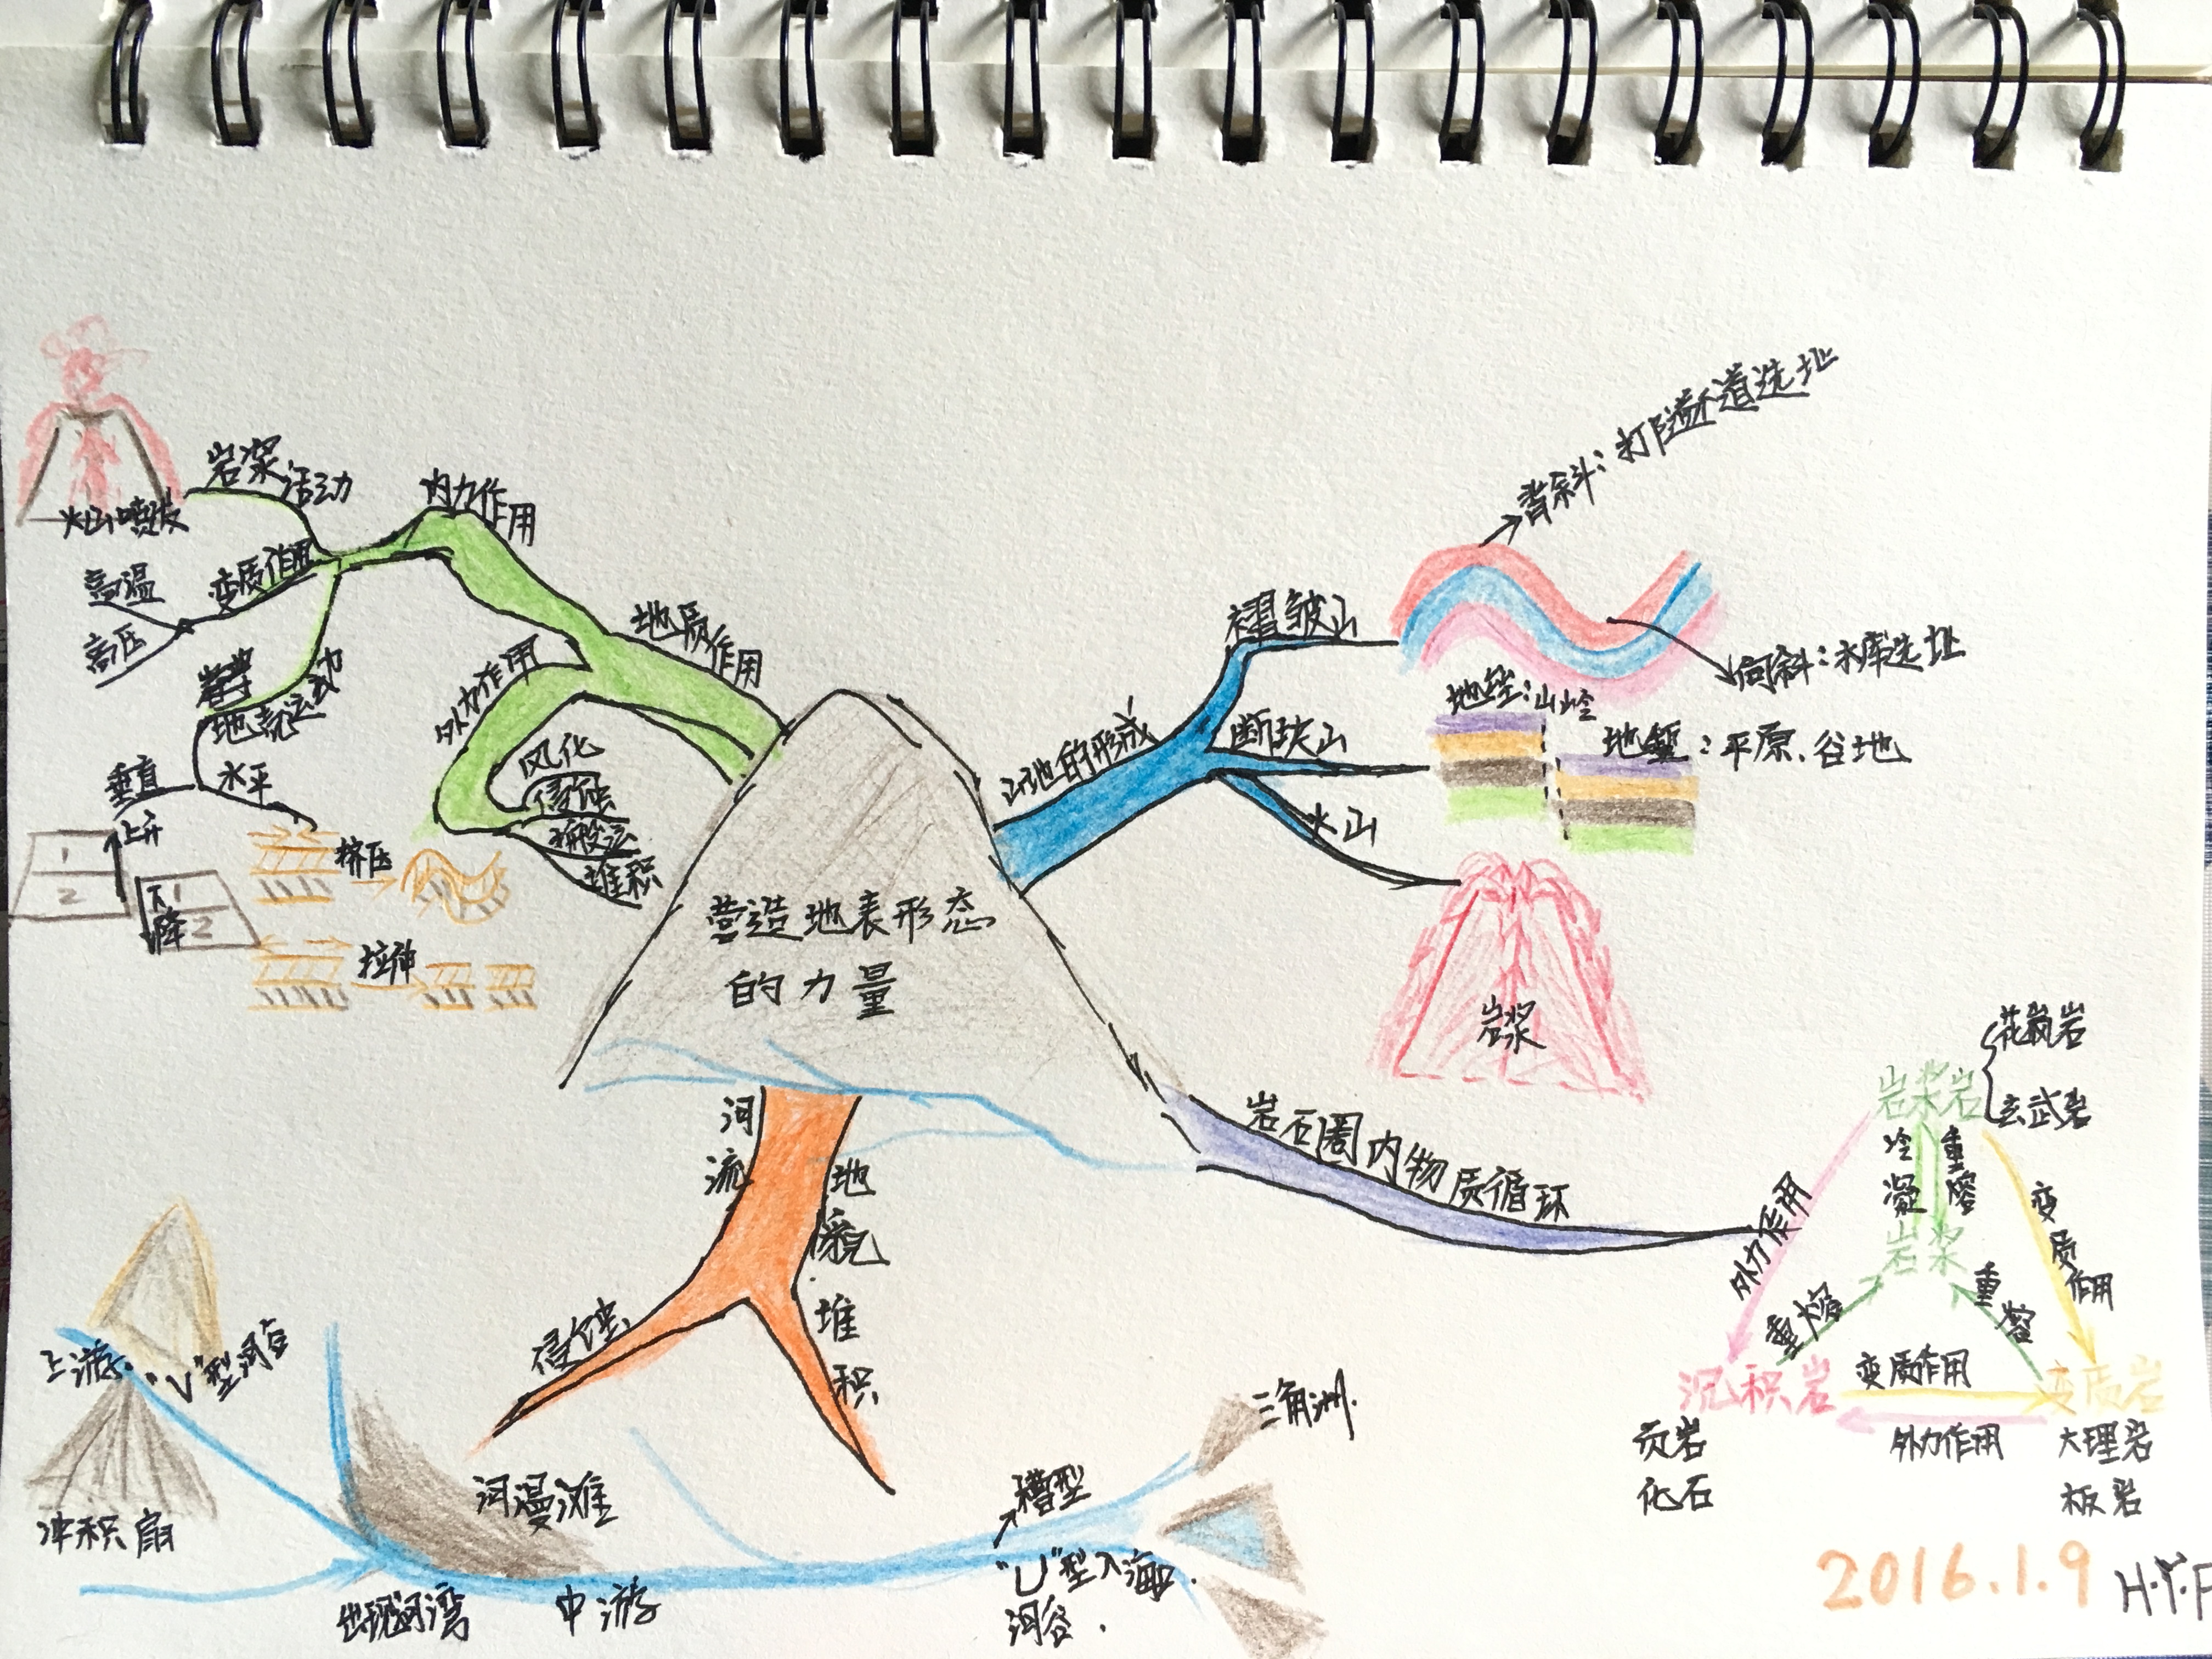 营造地表形态
的力量
地质作用
内力作用
岩浆活动
火山喷发
变质作用
高温
高压
地壳运动
垂直
上升
1
2
下降
1
2
水平
挤压
拉伸
外力作用
风化
侵蚀
搬运
堆积
山地的形成
褶皱山
背斜：打隧道选址
向斜：水库选址
断块山
地垒：山岭
地堑：平原、谷地
火山
岩浆
岩石圈内物质循环
岩浆岩
花岗岩
玄武岩
冷凝
重熔
岩浆
外力作用
变质作用
重熔
重熔
沉积岩
变质作用
变质岩
外力作用
页岩
化石
大理岩
板岩
河流地貌
侵蚀
堆积
上游："V"型河谷
冲积扇
河漫滩
出现河湾
中游
槽型
"U"型入海.
河谷.
三角洲.
2016.1.9
H.Y.F